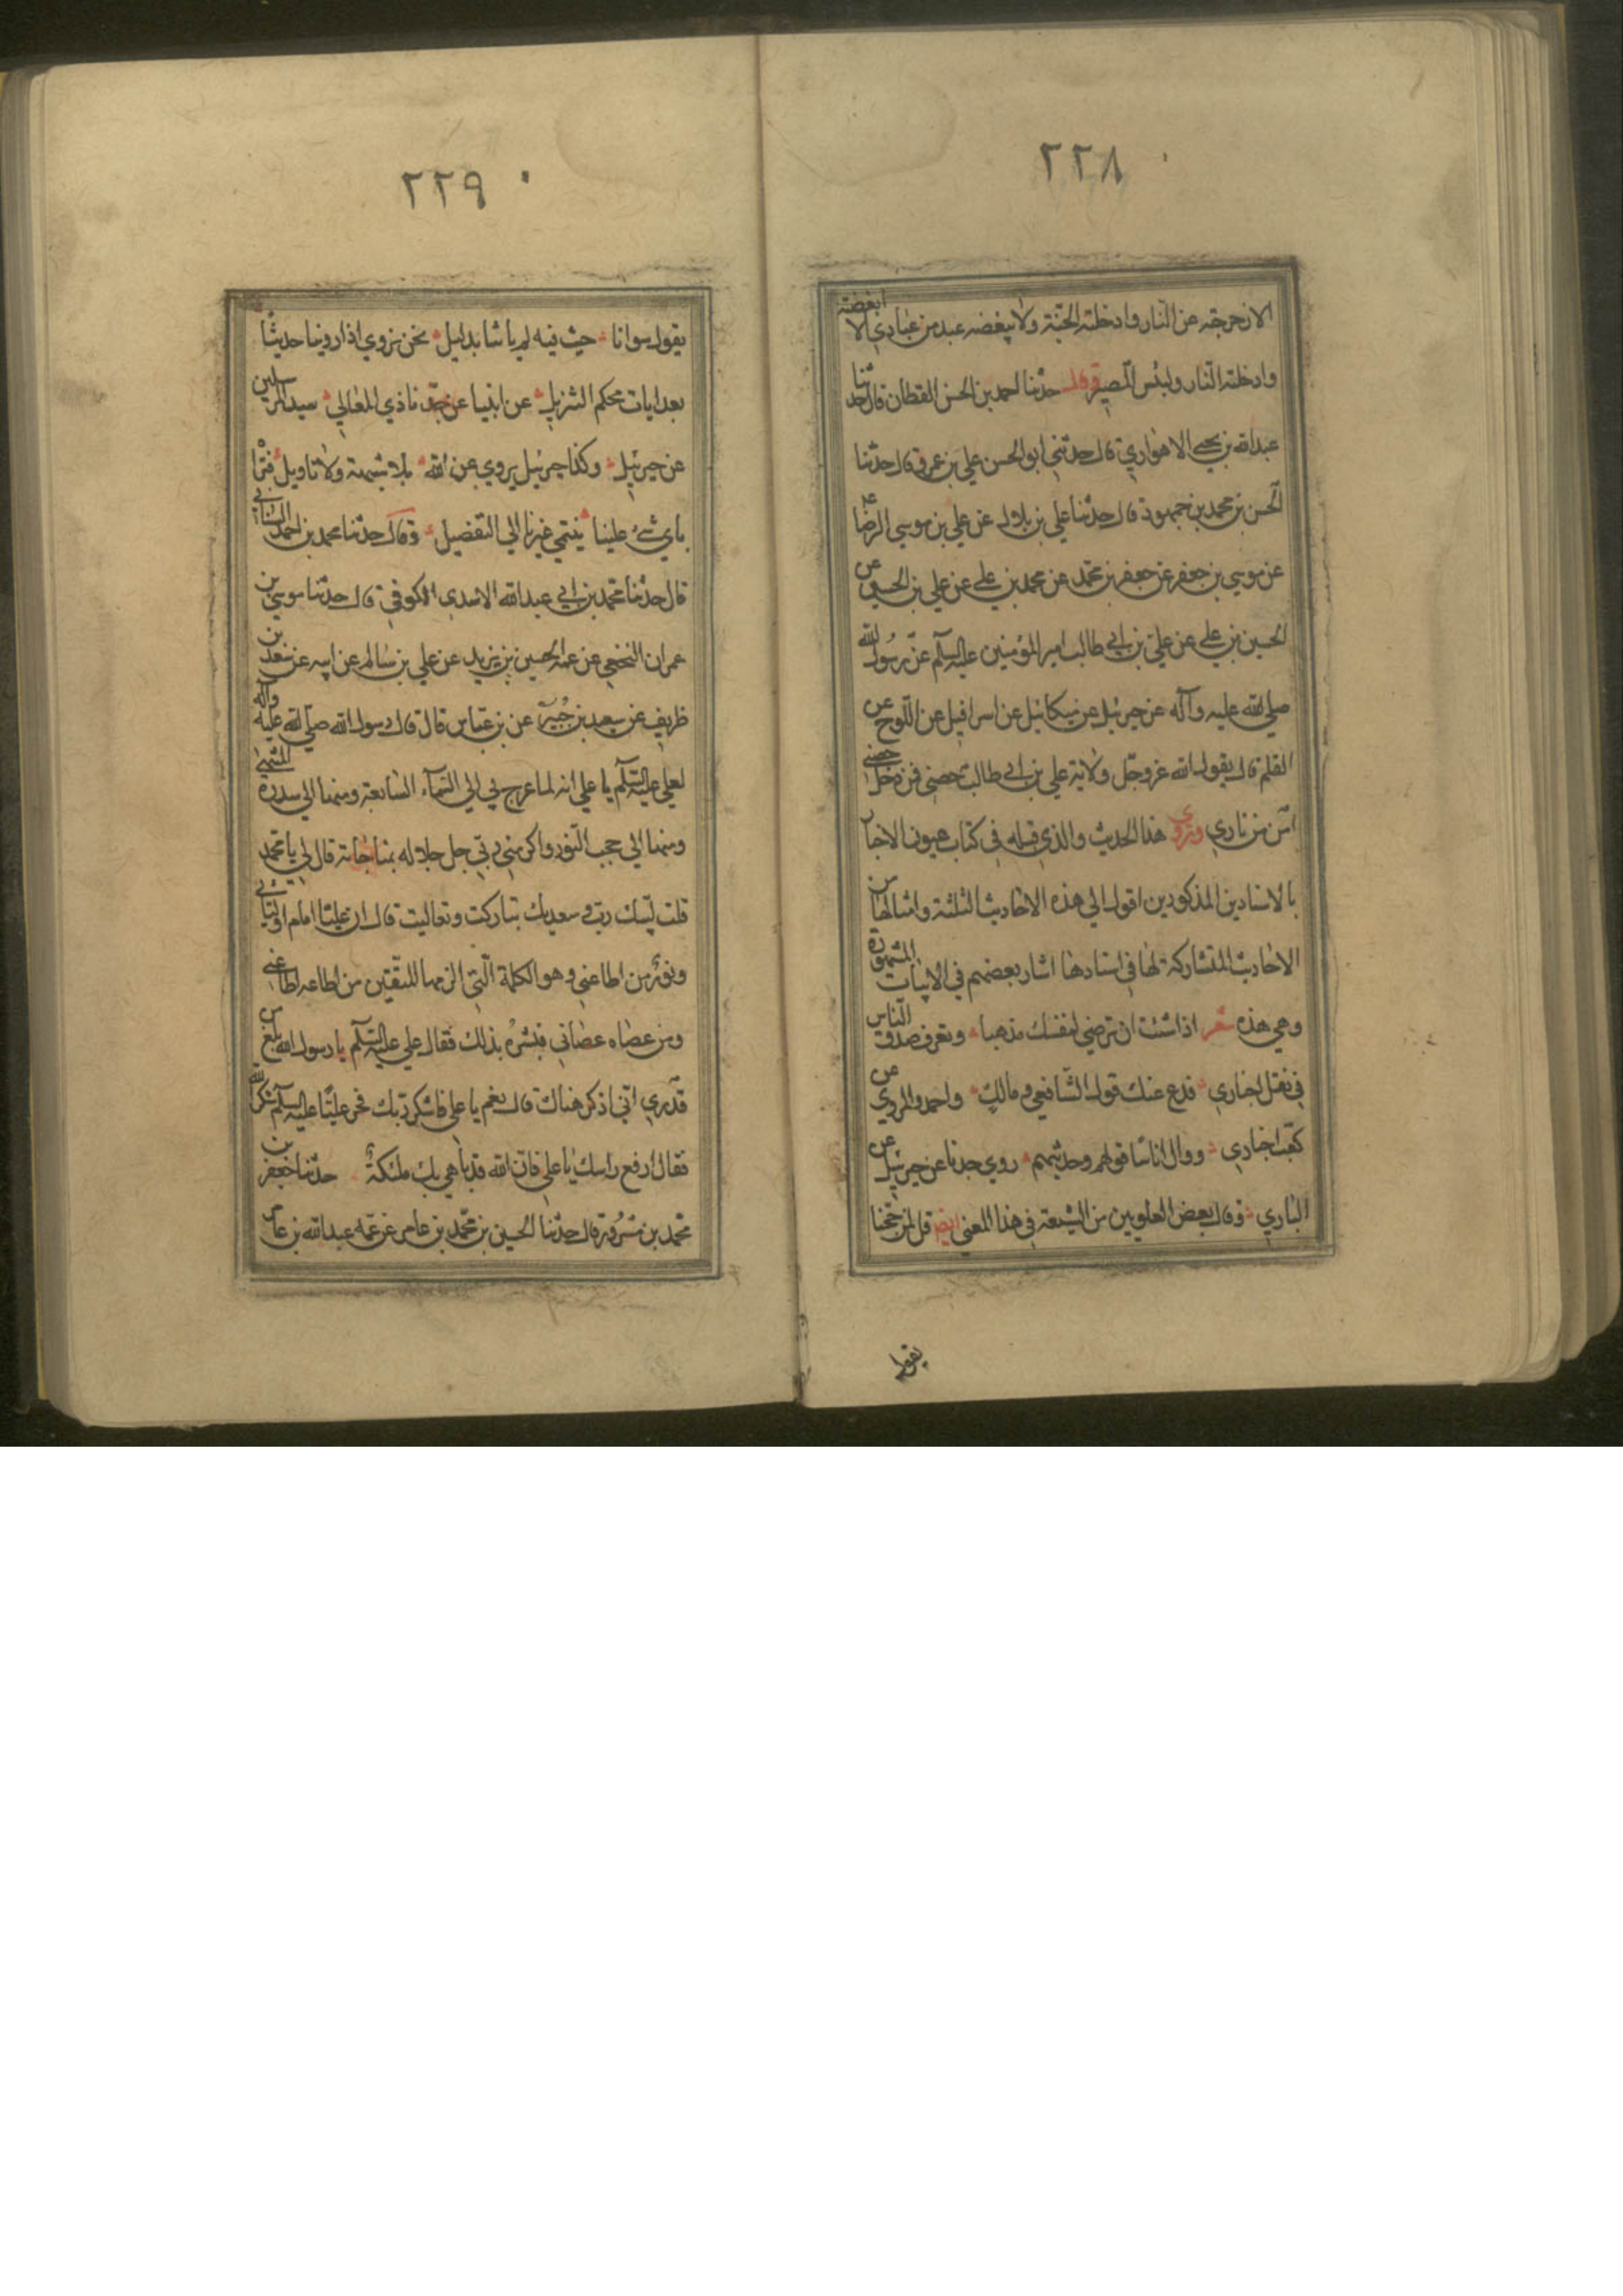 ٢٢٨
الا زحزحته عن النار وادخلته الجنة ولا يبغضه عبد من عبادي الا ابغضته
وادخلته النار ولبئس المصير وقال حدثنا احمد بن الحسن القطان قال حدثنا
عبد الله بن يحيى الاهوازي قال حدثني ابو الحسن علي بن عمرو قال حدثنا
الحسن بن محمد بن جمهور قال حدثنا علي بن بلال عن علي بن موسي الرضا ع
عن موسي بن جعفر عن جعفر بن محمد عن محمد بن علي عن علي بن الحسين عن
الحسين بن علي عن علي بن ابي طالب امير المؤمنين عليه السلم عن رسول الله
صلي الله عليه وآله عن جبرئيل عن ميكائيل عن اسرافيل عن اللوح عن
القلم قال يقول الله عز وجل ولاية علي بن ابي طالب حصني فمن دخل حصني
امن من ناري وروي هذا الحديث والذي قبله في كتاب عيون الاخبار
بالاسنادين المذكورين اقول الي هذه الاحاديث الثلثة وامثالها من
الاحاديث المتشاركة لها في اسنادها اشار بعضهم في الابيات المشهورة
وهي هذه شعر اذا شئت ان ترضي لنفسك مذهبا وتعرف صدق الناس
في نقل اخباري فدع عنك قول الشافعي ومالك واحمد والمروي عن
كعب اخباري ووال اناسا قولهم وحديثهم روي جدنا عن جبرئيل عن
الباري وقال بعض العلويين من الشيعة في هذا المعني ايض قل لمن حجنا
يقول
٢٢٩
يقول سوانا حيث فيه لم ياتنا بدليل نحن نروي اذا روينا حديثا
بعد ايات محكم التنزيل عن ابينا عن جدنا ذي المعالي سيد المرسلين
عن جبرئيل وكذا جبرئيل يروي عن الله بلا شبهة ولا تاويل فتري
باي شئ علينا ينتمي غيرنا الي التفضيل وقال حدثنا محمد بن احمد السناني
قال حدثنا محمد بن ابي عبد الله الاسدي الكوفي قال حدثنا موسي بن
عمران النخعي عن عمه الحسين بن يزيد عن علي بن سالم عن ابيه عن سعد بن
ظريف عن سعيد بن جبير عن بن عباس قال قال رسول الله صلي الله عليه وآله
لعلي عليه السلم يا علي انه لما عرج بي الي السماء السابعة ومنها الي سدرة المنتهي
ومنها الي حجب النور واكرمني ربي جل جلاله بمناجاته قال لي يا محمد
قلت لبيك ربي وسعديك تباركت وتعاليت قال ان عليا امام اوليائي
ونور من اطاعني وهو الكلمة التي الزمها للمتقين من اطاعه اطاعني
ومن عصاه عصاني فبشره بذلك فقال علي عليه السلم يا رسول الله بلغ من
قدري اني اذكر هناك قال نعم يا علي فاشكر ربك فخر عليا عليه السلم شكرا لله
فقال ارفع راسك يا علي فان الله قد باهي بك ملئكته حدثنا جعفر بن
محمد بن مسرور قال حدثنا الحسين بن محمد بن عامر عن عمه عبد الله بن عامر